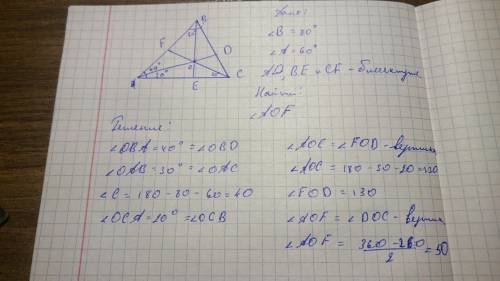 Дано:
∠B = 80°
∠A = 60°
AD, BE и CF – биссектрисы
Найти:
∠AOF
B
F
D
O
A
E
C
Решение:
∠OBA = 40° = ∠OBD
∠OAB = 30° = ∠OAC
∠C = 180 - 80 - 60 = 40
∠OCA = 20° = ∠OCB
∠AOC = ∠FOD – вертик
∠AOC = 180 - 30 - 20 = 130
∠FOD = 130
∠AOF = ∠DOC – вертик
∠AOF = (360 - 260)/2 = 50